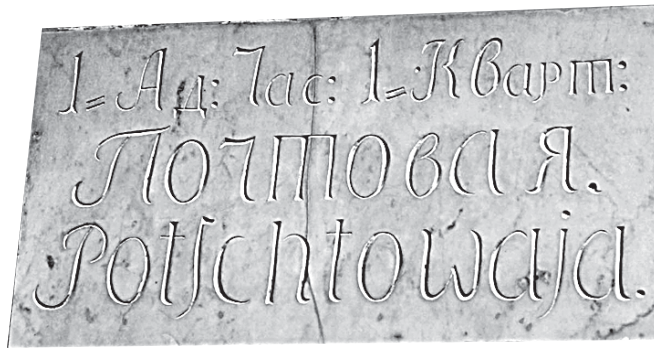 1= Ад: Час: 1=: Кварт:
Почтовая.
Potſchtowaja.